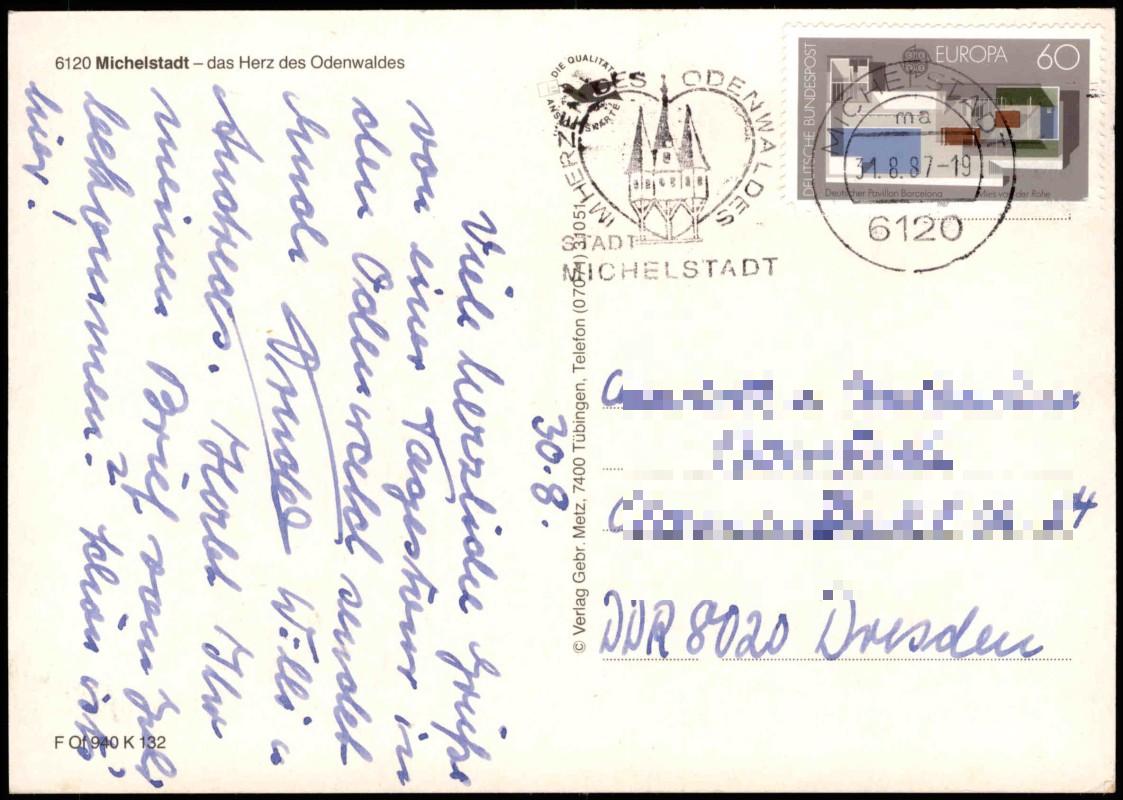 6120 Michelstadt – das Herz des Odenwaldes
30.8.
Viele herzliche Grüße
von einer Tagestour in
den Odenwald sendet
Euch
Willi u
Andreas. Habt Ihr
meinen Brief vom Juli
bekommen? Schön ists
hier!
F Of 940 K 132
© Verlag Gebr. Metz, 7400 Tübingen, Telefon (07071) 31051
DIE QUALITÄT
ANSICHTSKARTE
IM HERZEN DES ODENWALDES
STADT
MICHELSTADT
DEUTSCHE BUNDESPOST
EUROPA 60
Deutscher Pavillon Barcelona
Mies van der Rohe
MICHELSTADT
ma
31.8.87-19
6120
DDR 8020 Dresden